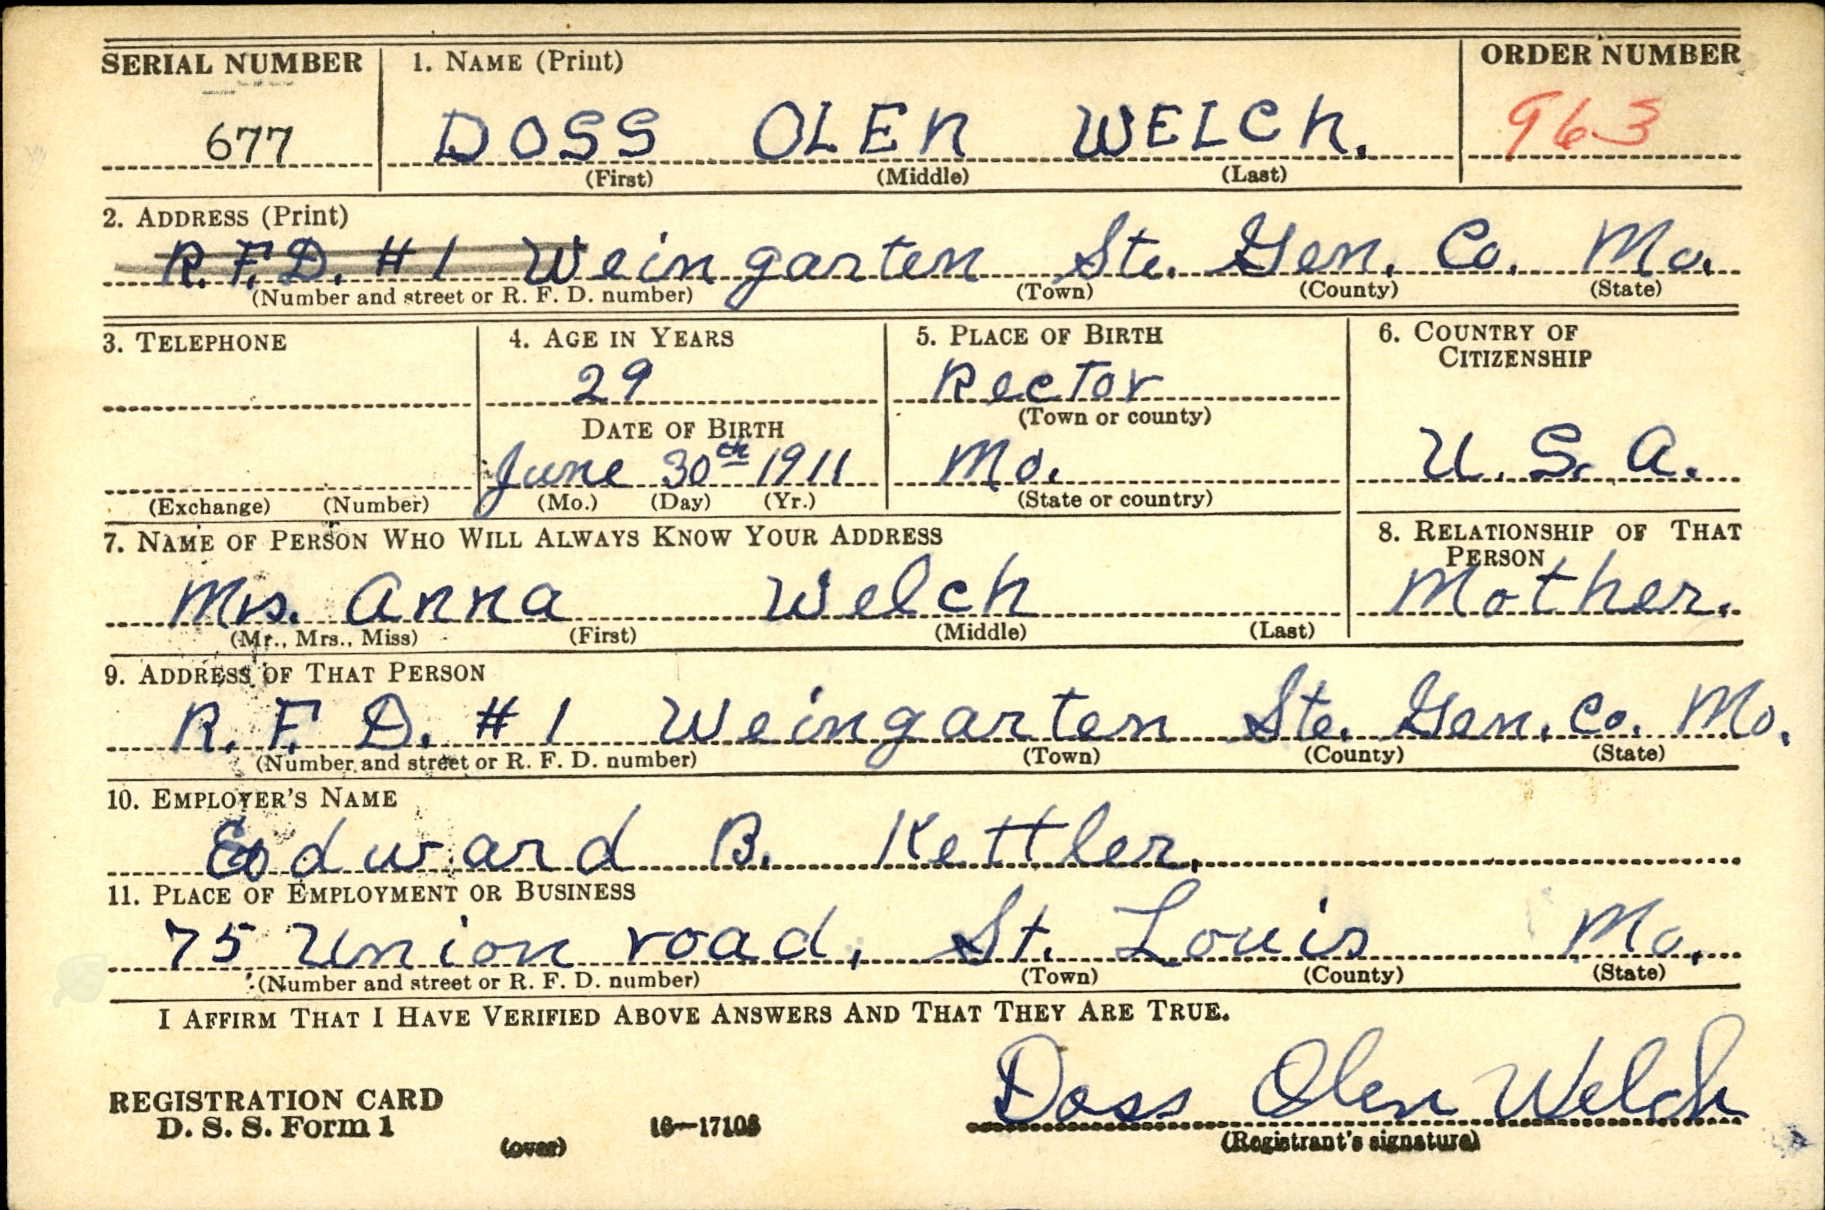 SERIAL NUMBER 1. NAME (Print) ORDER NUMBER
677 DOSS OLEN WELCH. 963
(First) (Middle) (Last)
2. ADDRESS (Print)
R.F.D. #1 Weingarten Ste. Gen. Co. Mo.
(Number and street or R. F. D. number) (Town) (County) (State)
3. TELEPHONE 4. AGE IN YEARS 5. PLACE OF BIRTH 6. COUNTRY OF
CITIZENSHIP
29 Rector
(Town or county)
DATE OF BIRTH
June 30th 1911 Mo. U. S. A.
(Exchange) (Number) (Mo.) (Day) (Yr.) (State or country)
7. NAME OF PERSON WHO WILL ALWAYS KNOW YOUR ADDRESS 8. RELATIONSHIP OF THAT
PERSON
Mrs. Anna Welch Mother.
(Mr., Mrs., Miss) (First) (Middle) (Last)
9. ADDRESS OF THAT PERSON
R. F. D. #1 Weingarten Ste. Gen. Co. Mo.
(Number and street or R. F. D. number) (Town) (County) (State)
10. EMPLOYER'S NAME
Edward B. Kettler.
11. PLACE OF EMPLOYMENT OR BUSINESS
75 Union road, St. Louis Mo.
(Number and street or R. F. D. number) (Town) (County) (State)
I AFFIRM THAT I HAVE VERIFIED ABOVE ANSWERS AND THAT THEY ARE TRUE.
REGISTRATION CARD
D. S. S. Form 1 Doss Olen Welch
(over) 16—17105 (Registrant's signature)